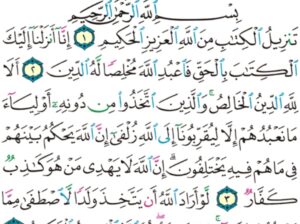 بِسْمِ ٱللَّهِ ٱلرَّحْمَٰنِ ٱلرَّحِيمِ
تَنزِيلُ ٱلْكِتَٰبِ مِنَ ٱللَّهِ ٱلْعَزِيزِ ٱلْحَكِيمِ ١ إِنَّآ أَنزَلْنَآ إِلَيْكَ
ٱلْكِتَٰبَ بِٱلْحَقِّ فَٱعْبُدِ ٱللَّهَ مُخْلِصًا لَّهُ ٱلدِّينَ ٢ أَلَا
لِلَّهِ ٱلدِّينُ ٱلْخَالِصُ ۚ وَٱلَّذِينَ ٱتَّخَذُوا۟ مِن دُونِهِۦٓ أَوْلِيَآءَ
مَا نَعْبُدُهُمْ إِلَّا لِيُقَرِّبُونَآ إِلَى ٱللَّهِ زُلْفَىٰٓ إِنَّ ٱللَّهَ يَحْكُمُ بَيْنَهُمْ
فِى مَا هُمْ فِيهِ يَخْتَلِفُونَ ۗ إِنَّ ٱللَّهَ لَا يَهْدِى مَنْ هُوَ كَٰذِبٌ
كَفَّارٌ ٣ لَّوْ أَرَادَ ٱللَّهُ أَن يَتَّخِذَ وَلَدًا لَّٱصْطَفَىٰ مِمَّا